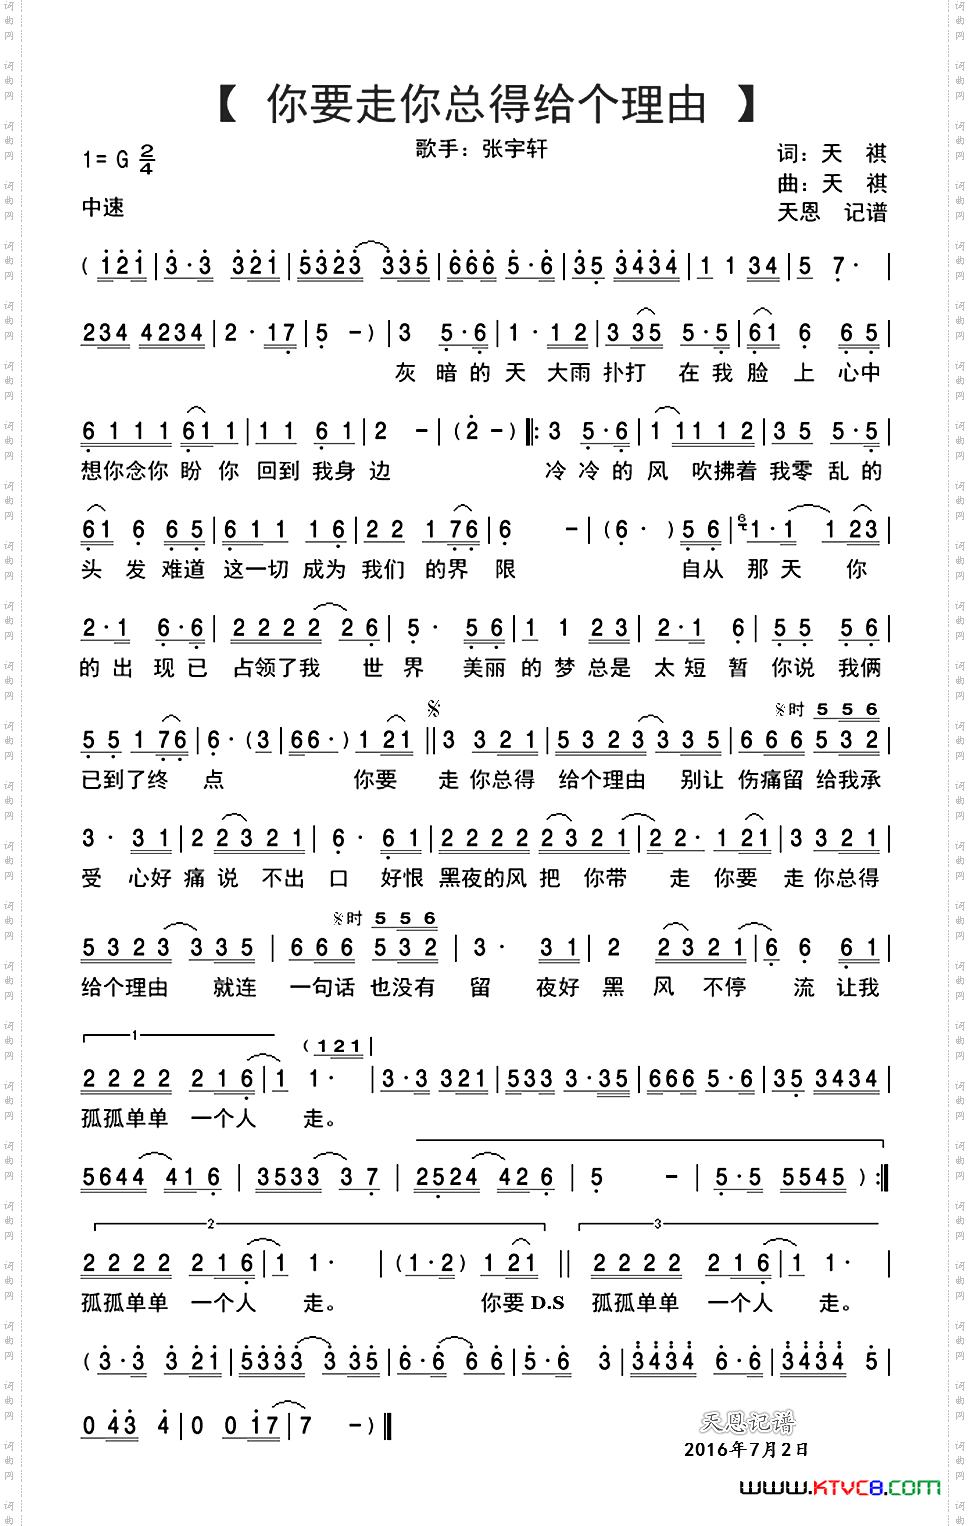 【 你要走你总得给个理由 】
歌手：张宇轩
1= G 2/4
词：天 祺
曲：天 祺
中速
天恩 记谱
( 1 2 1 | 3 · 3 3 2 1 | 5 3 2 3 3 3 5 | 6 6 6 5 · 6 | 3 5 3 4 3 4 | 1 1 3 4 | 5 7 · |
2 3 4 4 2 3 4 | 2 · 1 7 | 5 – ) | 3 5 · 6 | 1 · 1 2 | 3 3 5 5 · 5 | 6 1 6 6 5 |
灰 暗 的 天 大雨 扑打 在 我 脸 上 心中
6 1 1 1 6 1 1 | 1 1 6 1 | 2 – | ( 2 – ) ‖: 3 5 · 6 | 1 1 1 1 2 | 3 5 5 · 5 |
想你念你 盼 你 回到 我身 边 冷 冷 的 风 吹拂着 我零 乱 的
6 1 6 6 5 | 6 1 1 1 6 | 2 2 1 7 6 | 6 – | ( 6 · ) 5 6 | 6 1 · 1 1 2 3 |
头 发 难道 这一切 成为 我们 的界 限 自从 那 天 你
2 · 1 6 · 6 | 2 2 2 2 2 6 | 5 · 5 6 | 1 1 2 3 | 2 · 1 6 | 5 5 5 6 |
的 出 现 已 占领了我 世 界 美丽 的 梦 总是 太 短 暂 你说 我俩
𝄋时 5 5 6
5 5 1 7 6 | 6 · ( 3 | 6 6 · ) 1 2 1 ‖ 𝄋 3 3 2 1 | 5 3 2 3 3 3 5 | 6 6 6 5 3 2 |
已到了终 点 你要 走 你总得 给个理由 别让 伤痛留 给我承
3 · 3 1 | 2 2 3 2 1 | 6 · 6 1 | 2 2 2 2 2 3 2 1 | 2 2 · 1 2 1 | 3 3 2 1 |
受 心好 痛 说 不出 口 好恨 黑夜的风 把 你带 走 你要 走 你总得
𝄋时 5 5 6
5 3 2 3 3 3 5 | 6 6 6 5 3 2 | 3 · 3 1 | 2 2 3 2 1 | 6 6 6 1 |
给个理由 就连 一句话 也没有 留 夜好 黑 风 不停 流 让我
1 ( 1 2 1 |
2 2 2 2 2 1 6 | 1 1 · | 3 · 3 3 2 1 | 5 3 3 3 · 3 5 | 6 6 6 5 · 6 | 3 5 3 4 3 4 |
孤孤单单 一个人 走。
5 6 4 4 4 1 6 | 3 5 3 3 3 7 | 2 5 2 4 4 2 6 | 5 – | 5 · 5 5 5 4 5 ) :‖
2 3
2 2 2 2 2 1 6 | 1 1 · | ( 1 · 2 ) 1 2 1 ‖ 2 2 2 2 2 1 6 | 1 1 · |
孤孤单单 一个人 走。 你要 D.S 孤孤单单 一个人 走。
( 3 · 3 3 2 1 | 5 3 3 3 3 3 5 | 6 · 6 6 6 6 | 5 · 6 3 | 3 4 3 4 6 · 6 | 3 4 3 4 5 |
0 4 3 4 | 0 0 1 7 | 7 – ) ‖
天恩记谱
2016年7月2日
www.KTVC8.com